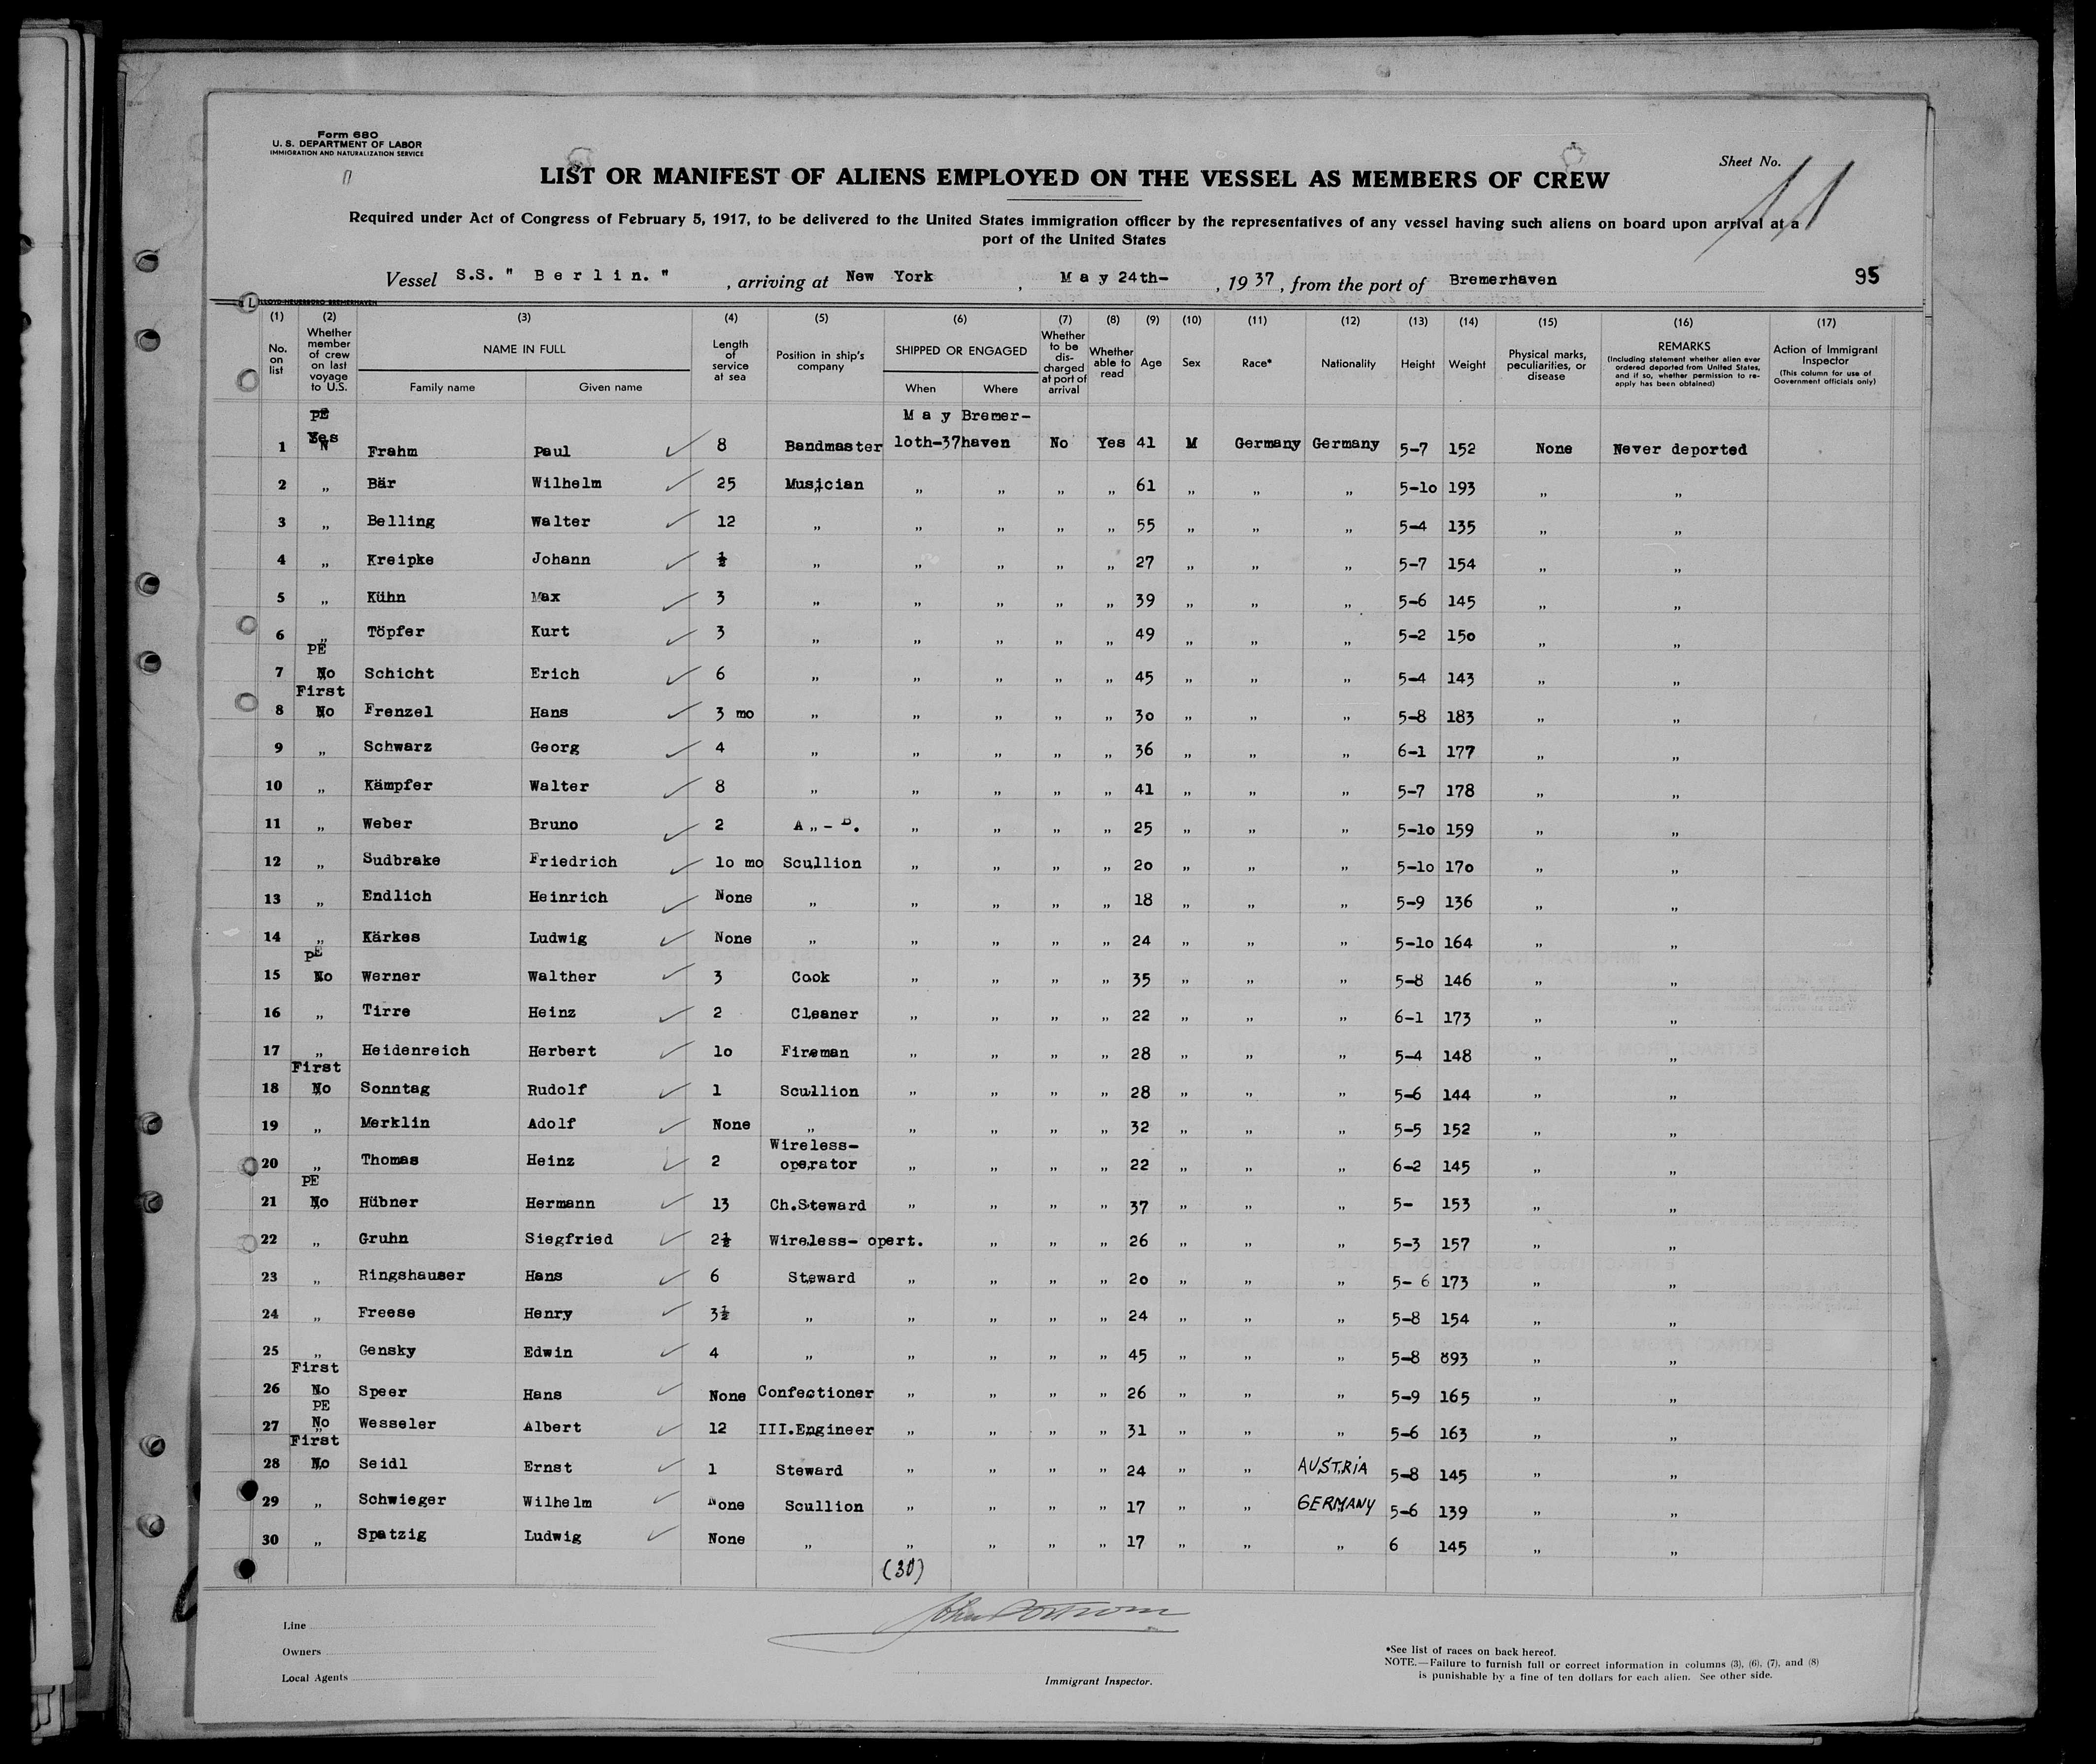 Form 680
U. S. DEPARTMENT OF LABOR
IMMIGRATION AND NATURALIZATION SERVICE
Sheet No. 11
LIST OR MANIFEST OF ALIENS EMPLOYED ON THE VESSEL AS MEMBERS OF CREW
Required under Act of Congress of February 5, 1917, to be delivered to the United States immigration officer by the representatives of any vessel having such aliens on board upon arrival at a
port of the United States
Vessel S.S. " B e r l i n. " , arriving at New York , M a y 24th- , 19 37 , from the port of Bremerhaven 95
(1) (2) (3) (4) (5) (6) (7) (8) (9) (10) (11) (12) (13) (14) (15) (16) (17)
No. on list
Whether member of crew on last voyage to U.S.
NAME IN FULL
Family name Given name
Length of service at sea
Position in ship's company
SHIPPED OR ENGAGED
When Where
Whether to be discharged at port of arrival
Whether able to read
Age
Sex
Race*
Nationality
Height
Weight
Physical marks, peculiarities, or disease
REMARKS
(Including statement whether alien ever ordered deported from United States, and if so, whether permission to reapply has been obtained)
Action of Immigrant Inspector
(This column for use of Government officials only)
PE M a y Bremer-
1 Yes Frahm Paul 8 Bandmaster 1oth-37 haven No Yes 41 M Germany Germany 5-7 152 None Never deported
2 „ Bär Wilhelm 25 Musician „ „ „ „ 61 „ „ „ 5-1o 193 „ „
3 „ Belling Walter 12 „ „ „ „ „ 55 „ „ „ 5-4 135 „ „
4 „ Kreipke Johann ½ „ „ „ „ „ 27 „ „ „ 5-7 154 „ „
5 „ Kühn Max 3 „ „ „ „ „ 39 „ „ „ 5-6 145 „ „
6 „ Töpfer Kurt 3 „ „ „ „ „ 49 „ „ „ 5-2 15o „ „
PE
7 No Schicht Erich 6 „ „ „ „ „ 45 „ „ „ 5-4 143 „ „
First
8 No Frenzel Hans 3 mo „ „ „ „ „ 3o „ „ „ 5-8 183 „ „
9 „ Schwarz Georg 4 „ „ „ „ „ 36 „ „ „ 6-1 177 „ „
10 „ Kämpfer Walter 8 „ „ „ „ „ 41 „ „ „ 5-7 178 „ „
11 „ Weber Bruno 2 A „ - B. „ „ „ „ 25 „ „ „ 5-1o 159 „ „
12 „ Sudbrake Friedrich 1o mo Scullion „ „ „ „ 2o „ „ „ 5-1o 17o „ „
13 „ Endlich Heinrich None „ „ „ „ „ 18 „ „ „ 5-9 136 „ „
14 „ Kärkes Ludwig None „ „ „ „ „ 24 „ „ „ 5-1o 164 „ „
PE
15 No Werner Walther 3 Cook „ „ „ „ 35 „ „ „ 5-8 146 „ „
16 „ Tirre Heinz 2 Cleaner „ „ „ „ 22 „ „ „ 6-1 173 „ „
17 „ Heidenreich Herbert 1o Fireman „ „ „ „ 28 „ „ „ 5-4 148 „ „
First
18 No Sonntag Rudolf 1 Scullion „ „ „ „ 28 „ „ „ 5-6 144 „ „
19 „ Merklin Adolf None „ „ „ „ „ 32 „ „ „ 5-5 152 „ „
Wireless-
20 „ Thomas Heinz 2 operator „ „ „ „ 22 „ „ „ 6-2 145 „ „
PE
21 No Hübner Hermann 13 Ch.Steward „ „ „ „ 37 „ „ „ 5- 153 „ „
22 „ Gruhn Siegfried 2½ Wireless- opert. „ „ „ 26 „ „ „ 5-3 157 „ „
23 „ Ringshauser Hans 6 Steward „ „ „ „ 2o „ „ „ 5- 6 173 „ „
24 „ Freese Henry 3½ „ „ „ „ „ 24 „ „ „ 5-8 154 „ „
25 „ Gensky Edwin 4 „ „ „ „ „ 45 „ „ „ 5-8 893 „ „
First
26 No Speer Hans None Confectioner „ „ „ „ 26 „ „ „ 5-9 165 „ „
PE
27 No Wesseler Albert 12 III.Engineer „ „ „ „ 31 „ „ „ 5-6 163 „ „
First
28 No Seidl Ernst 1 Steward „ „ „ „ 24 „ „ AUSTRIA 5-8 145 „ „
29 „ Schwieger Wilhelm None Scullion „ „ „ „ 17 „ „ GERMANY 5-6 139 „ „
30 „ Spatzig Ludwig None „ „ „ „ „ 17 „ „ „ 6 145 „ „
(30)
Line
Owners
Local Agents
Immigrant Inspector.
*See list of races on back hereof.
NOTE.—Failure to furnish full or correct information in columns (3), (6), (7), and (8)
is punishable by a fine of ten dollars for each alien. See other side.